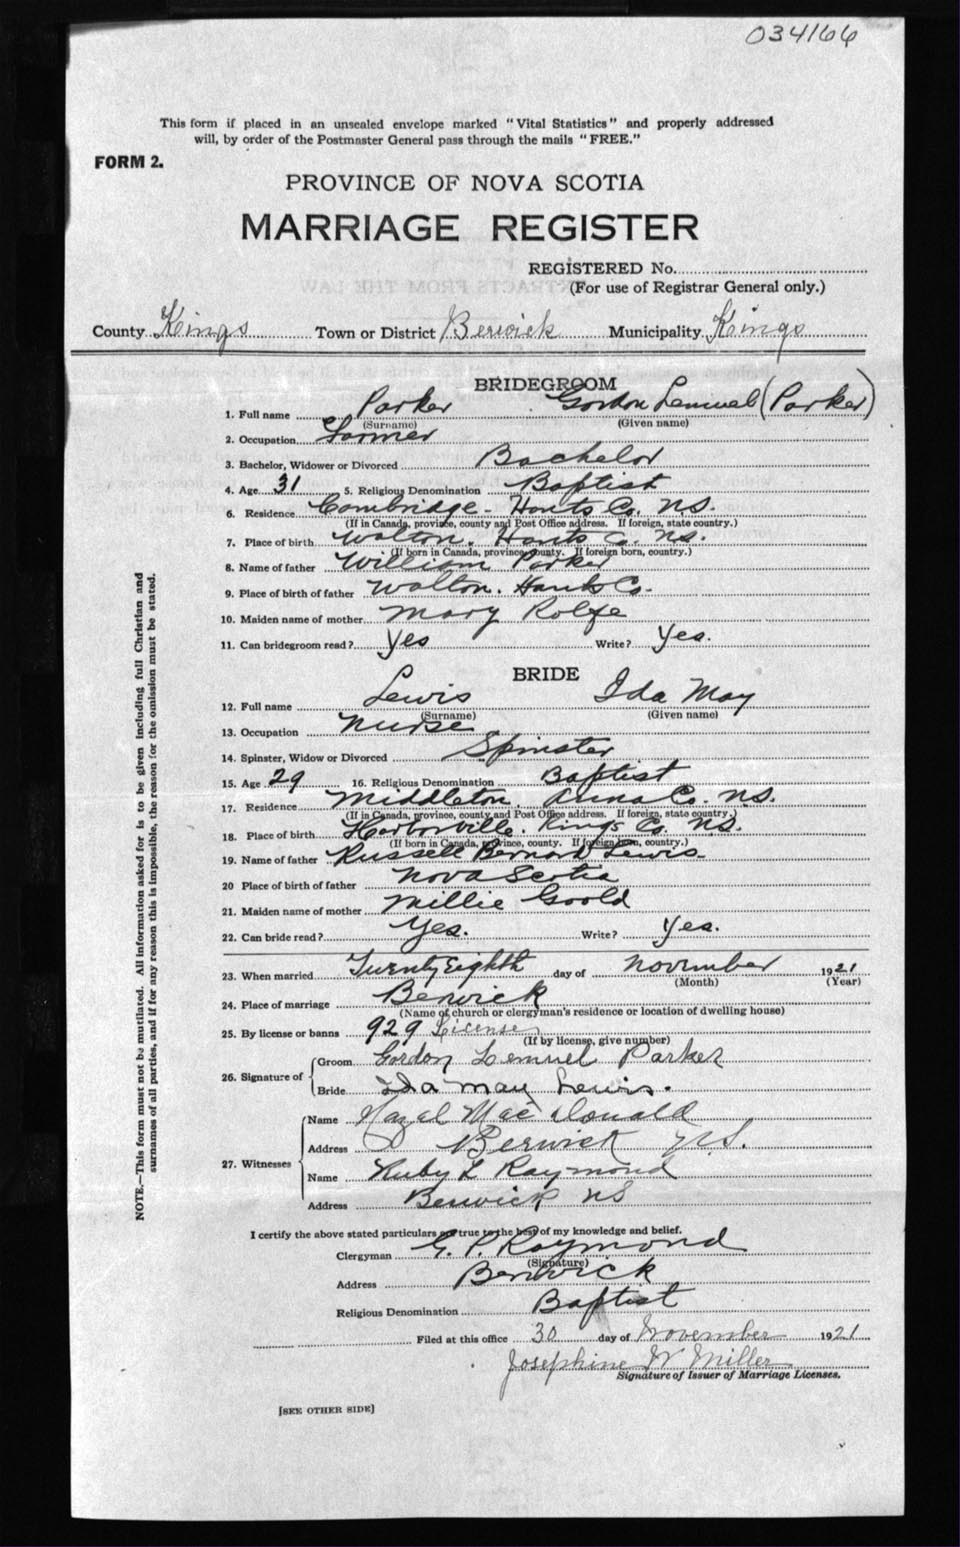 034166
This form if placed in an unsealed envelope marked "Vital Statistics" and properly addressed
will, by order of the Postmaster General pass through the mails "FREE."
FORM 2.
PROVINCE OF NOVA SCOTIA
MARRIAGE REGISTER
REGISTERED No.
(For use of Registrar General only.)
County Kings Town or District Berwick Municipality Kings
BRIDEGROOM
1. Full name Parker Gordon Lemuel (Parker)
(Surname) (Given name)
2. Occupation Farmer
3. Bachelor, Widower or Divorced Bachelor
4. Age 31 5. Religious Denomination Baptist
6. Residence Cambridge. Hants Co. N.S.
(If in Canada, province, county and Post Office address. If foreign, state country.)
7. Place of birth Walton. Hants Co. N.S.
(If born in Canada, province, county. If foreign born, country.)
8. Name of father William Parker
9. Place of birth of father Walton. Hants Co.
10. Maiden name of mother Mary Rolfe
11. Can bridegroom read? Yes Write? Yes.
BRIDE
12. Full name Lewis Ida May
(Surname) (Given name)
13. Occupation Nurse
14. Spinster, Widow or Divorced Spinster
15. Age 29 16. Religious Denomination Baptist
17. Residence Middleton. Anna Co. N.S.
(If in Canada, province, county and Post Office address. If foreign, state country.)
18. Place of birth Harborville. Kings Co. N.S.
(If born in Canada, province, county. If foreign born, country.)
19. Name of father Russell Bernard Lewis.
20 Place of birth of father Nova Scotia
21. Maiden name of mother Millie Goold
22. Can bride read? Yes. Write? Yes.
23. When married Twenty Eighth day of November 1921
(Month) (Year)
24. Place of marriage Berwick
(Name of church or clergyman's residence or location of dwelling house)
25. By license or banns 929 License
(If by license, give number)
26. Signature of Groom Gordon Lemuel Parker
Bride Ida May Lewis.
27. Witnesses Name Hazel MacDonald
Address Berwick N.S.
Name Ruby L Raymond
Address Berwick NS
I certify the above stated particulars are true to the best of my knowledge and belief.
Clergyman G. P. Raymond
(Signature)
Address Berwick
Religious Denomination Baptist
Filed at this office 30 day of November 1921
Josephine W Miller
Signature of Issuer of Marriage Licenses.
[SEE OTHER SIDE]
NOTE.—This form must not be mutilated. All information asked for is to be given including full Christian and
surnames of all parties, and if for any reason this is impossible, the reason for the omission must be stated.